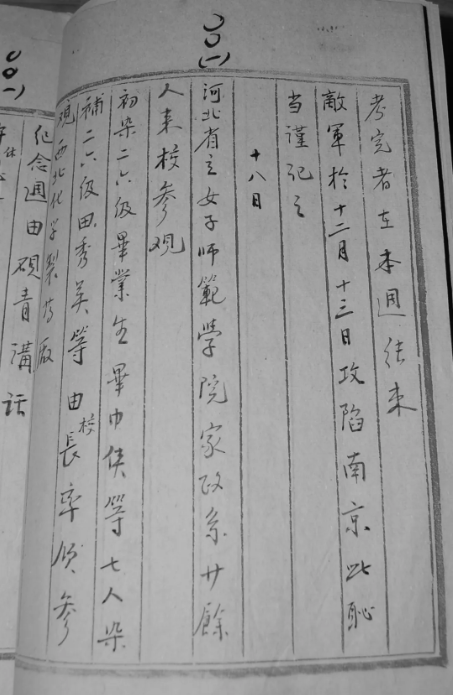 考完者在本週結束
敵軍於十二月十三日攻陷南京此恥
当謹記之
十八日
河北省立女子師範學院家政系廿餘
人來校參观
初染二六級畢業生畢巾俠等七人染
補二六級田秀英等由校長率領參
观西北化学製革廠
紀念週由硯青講話